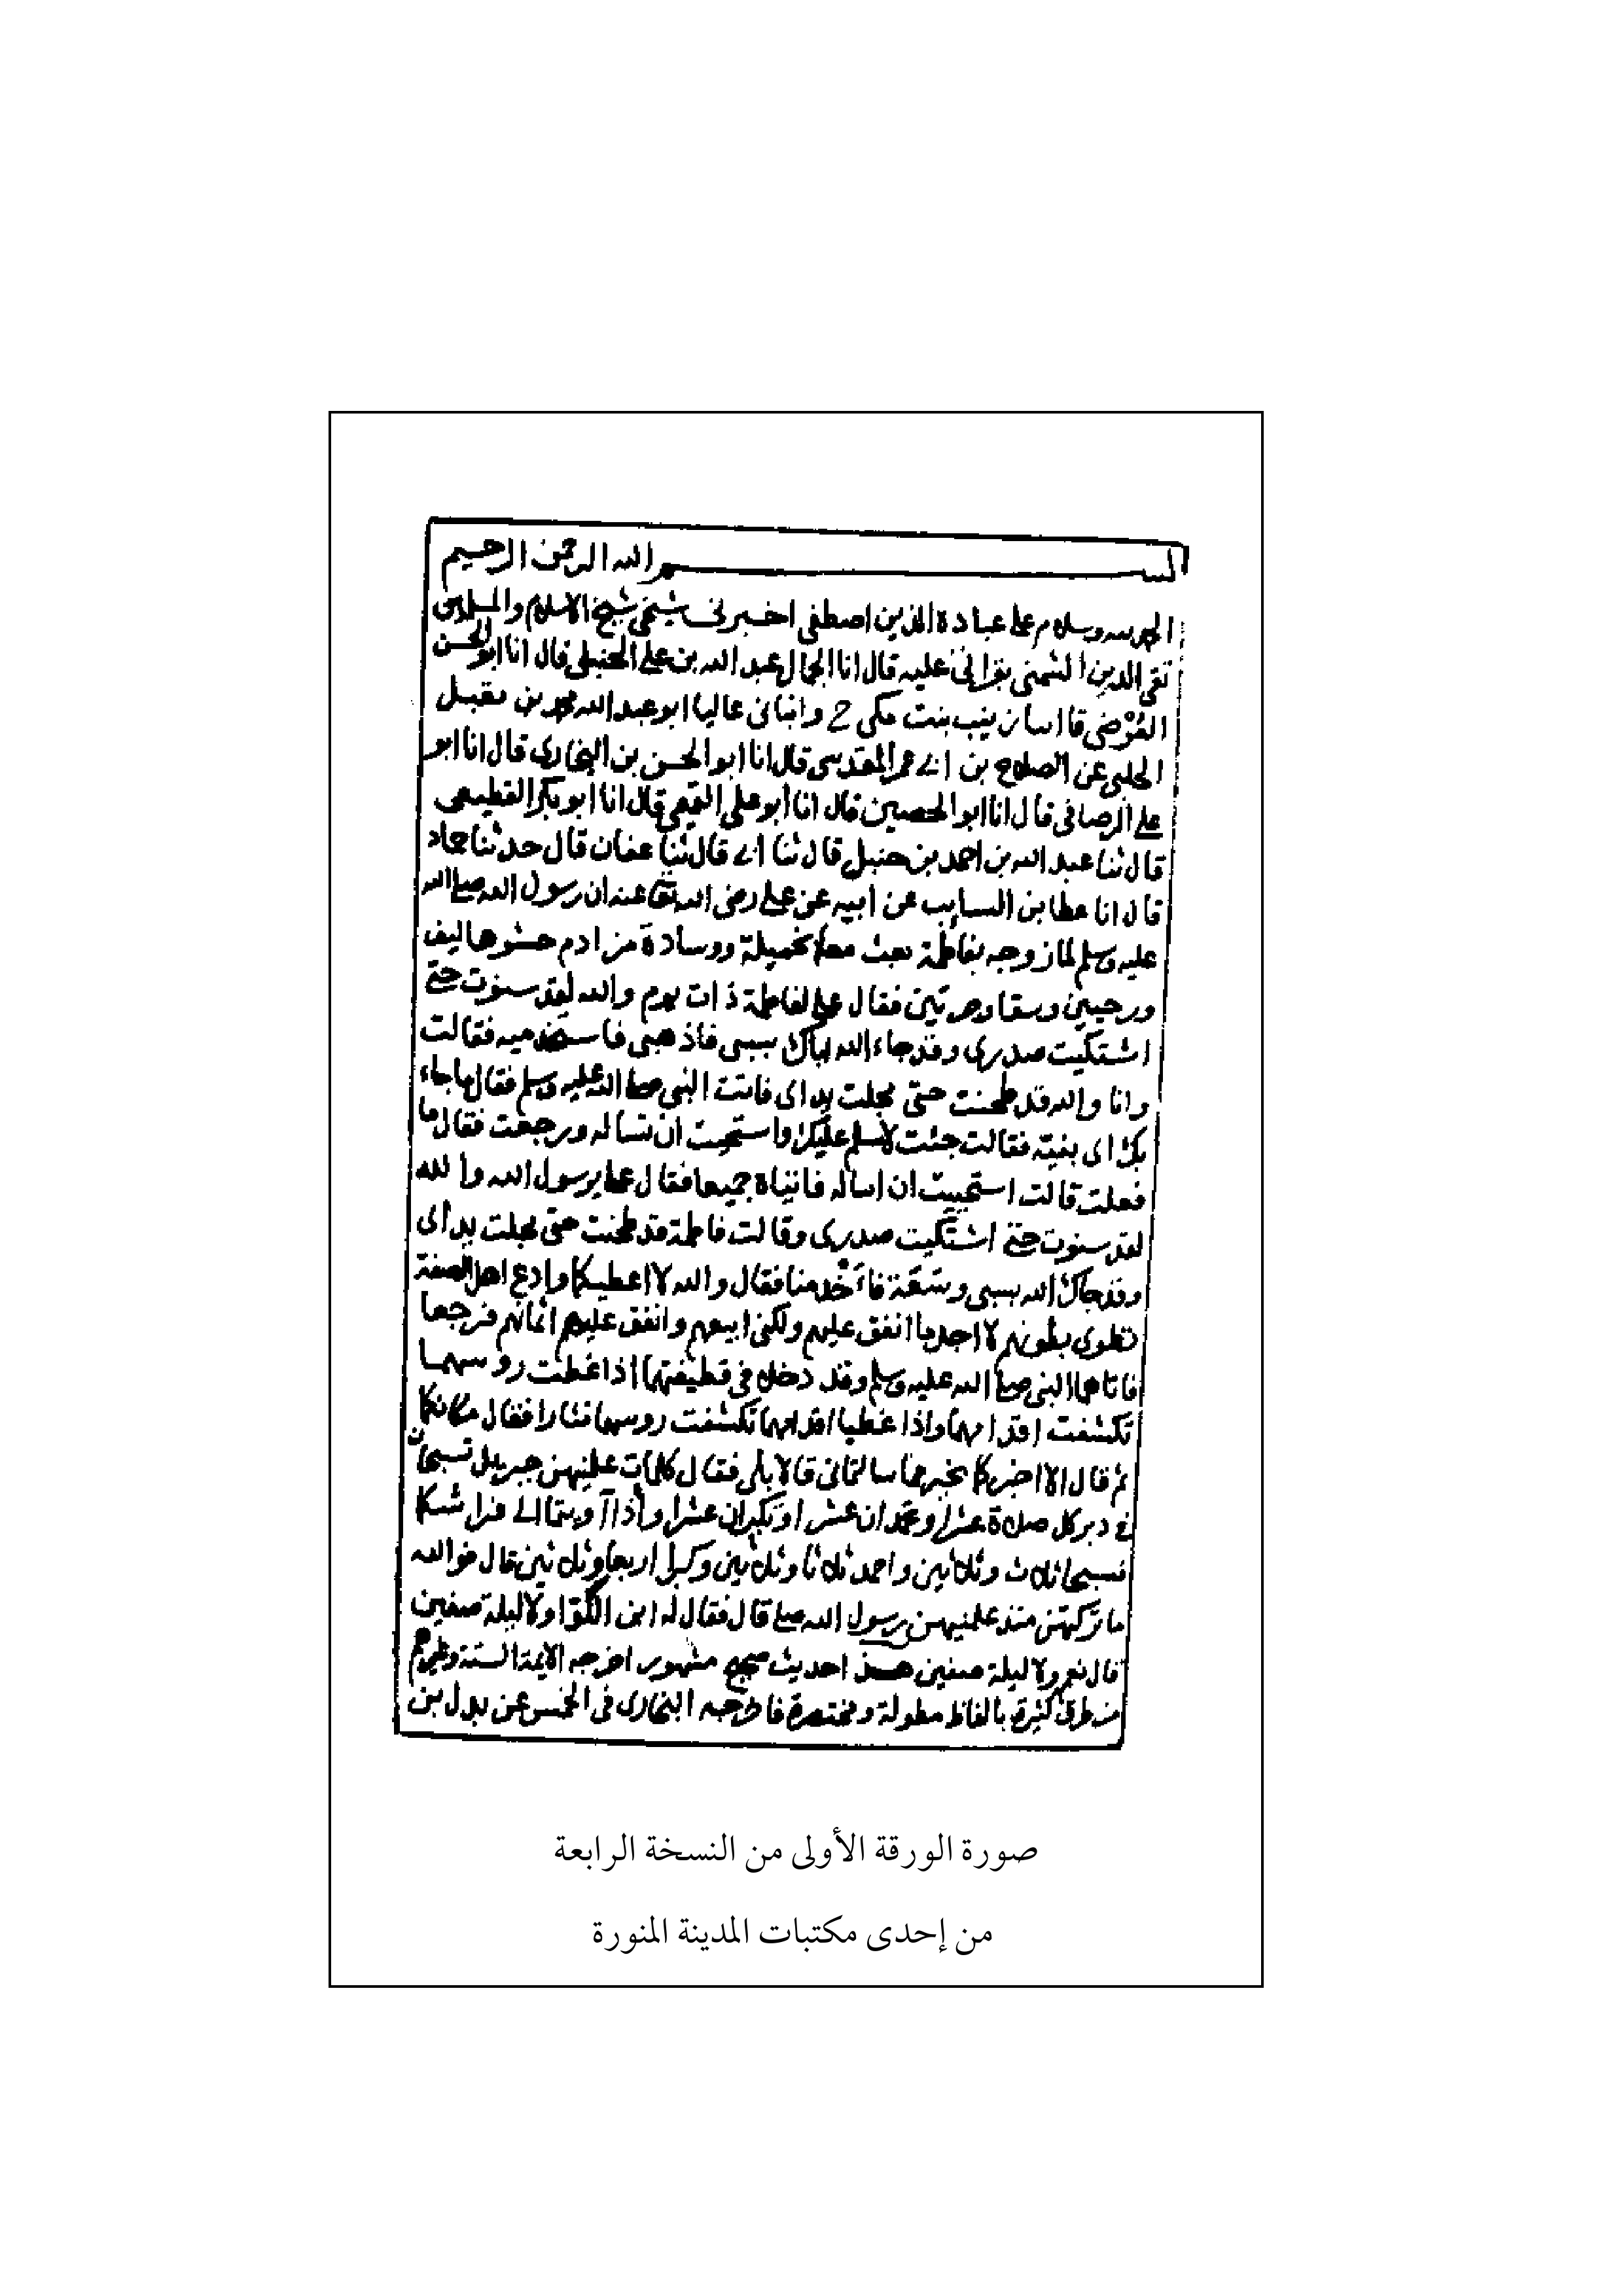 بسم الله الرحمن الرحيم
الحمد لله وسلام على عباده الذين اصطفى اخبرنى شيخى شيخ الاسلام والمسلمين
تقى الدين الشمنى بقراتى عليه قال انا الجمال عبد الله بن على الحنبلى قال انا ابو الحسن
العُرْضى قال زينب بنت مكى ح وانبانى عاليا ابو عبد الله محمد بن مقبل
الحلبى عن الصلاح بن ابى عمر المقدسى قال انا ابو الحسن بن البخارى قال انا ابو
على الرصافى قال انا ابو الحصين قال انا ابو على التميمى قال انا ابو بكر القطيعى
قال ثنا عبد الله بن احمد بن حنبل قال ثنا ابى قال ثنا عفان قال حدثنا حماد
قال انا عطا بن السايب عن ابيه عن على رضى الله تعالى عنه ان رسول الله صلى الله
عليه وسلم لما زوجه بفاطمة بعث معها بخميلة ووسادة من ادم حشوها ليف
ورحيين وسقا وجرتين فقال على لفاطمة ذات يوم والله لقد سنوت حتى
اشتكيت صدرى وقد جاء الله اباك بسبى فاذهبى فاستخدميه فقالت
وانا والله قد طحنت حتى مجلت يداى فاتت النبى صلى الله عليه وسلم فقال ما جاء
بك اى بنية فقالت جئت لاسلم عليك واستحيت ان تساله ورجعت فقال ما
فعلت قالت استحييت ان اساله فاتياه جميعا فقال على يرسول الله والله
لقد سنوت حتى اشتكيت صدرى وقالت فاطمة قد طحنت حتى مجلت يداى
وقد جاك الله بسبى وسَعَة فاَخْدمنا فقال والله لا اعطيكما وادع اهل الصفة
تطوى بطونهم لا اجد ما انفق عليهم ولكنى ابيعهم وانفق عليهم اثمانهم فرجعا
فاتاهما النبى صلى الله عليه وسلم وقد دخلا فى قطيفتهما اذا غطت روسهما
تكشفت اقدامهما واذا غطيا اقدامهما تكشفت روسهما فثارا فقال مكانكما
ثم قال الا اخبركما بخير مما سالتمانى قالا بلى فقال كلمات علمنيهن جبريل تسبحان
فى دبر كل صلاة عشرا وتحمدان عشرا وتكبران عشرا واذا اويتما الى فراشكما
فسبحا ثلاث وثلاثين واحمدا ثلاثا وثلاثين وكبرا اربعا وثلاثين قال فوالله
ما تركتهن منذ علمنيهن رسول الله صلى قال فقال له ابن الكوا ولا ليلة صفين
قال نعم ولا ليلة صفين هذا حديث صحيح مشهور اخرجه الايمة الستة وغيرهم
من طرق كثيرة بالفاظ مطولة ومختصرة فاخرجه البخارى فى الخمس عن بدل بن
صورة الورقة الأولى من النسخة الرابعة
من إحدى مكتبات المدينة المنورة